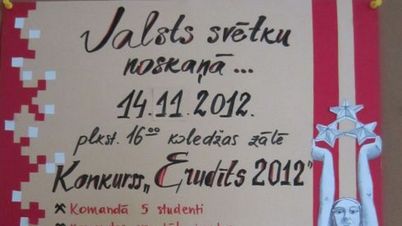 Valsts svētku
noskaņā...
14.11.2012.
plkst. 16⁰⁰ koledžas zālē
Konkurss „Erudīts 2012"
Komandā 5 studenti